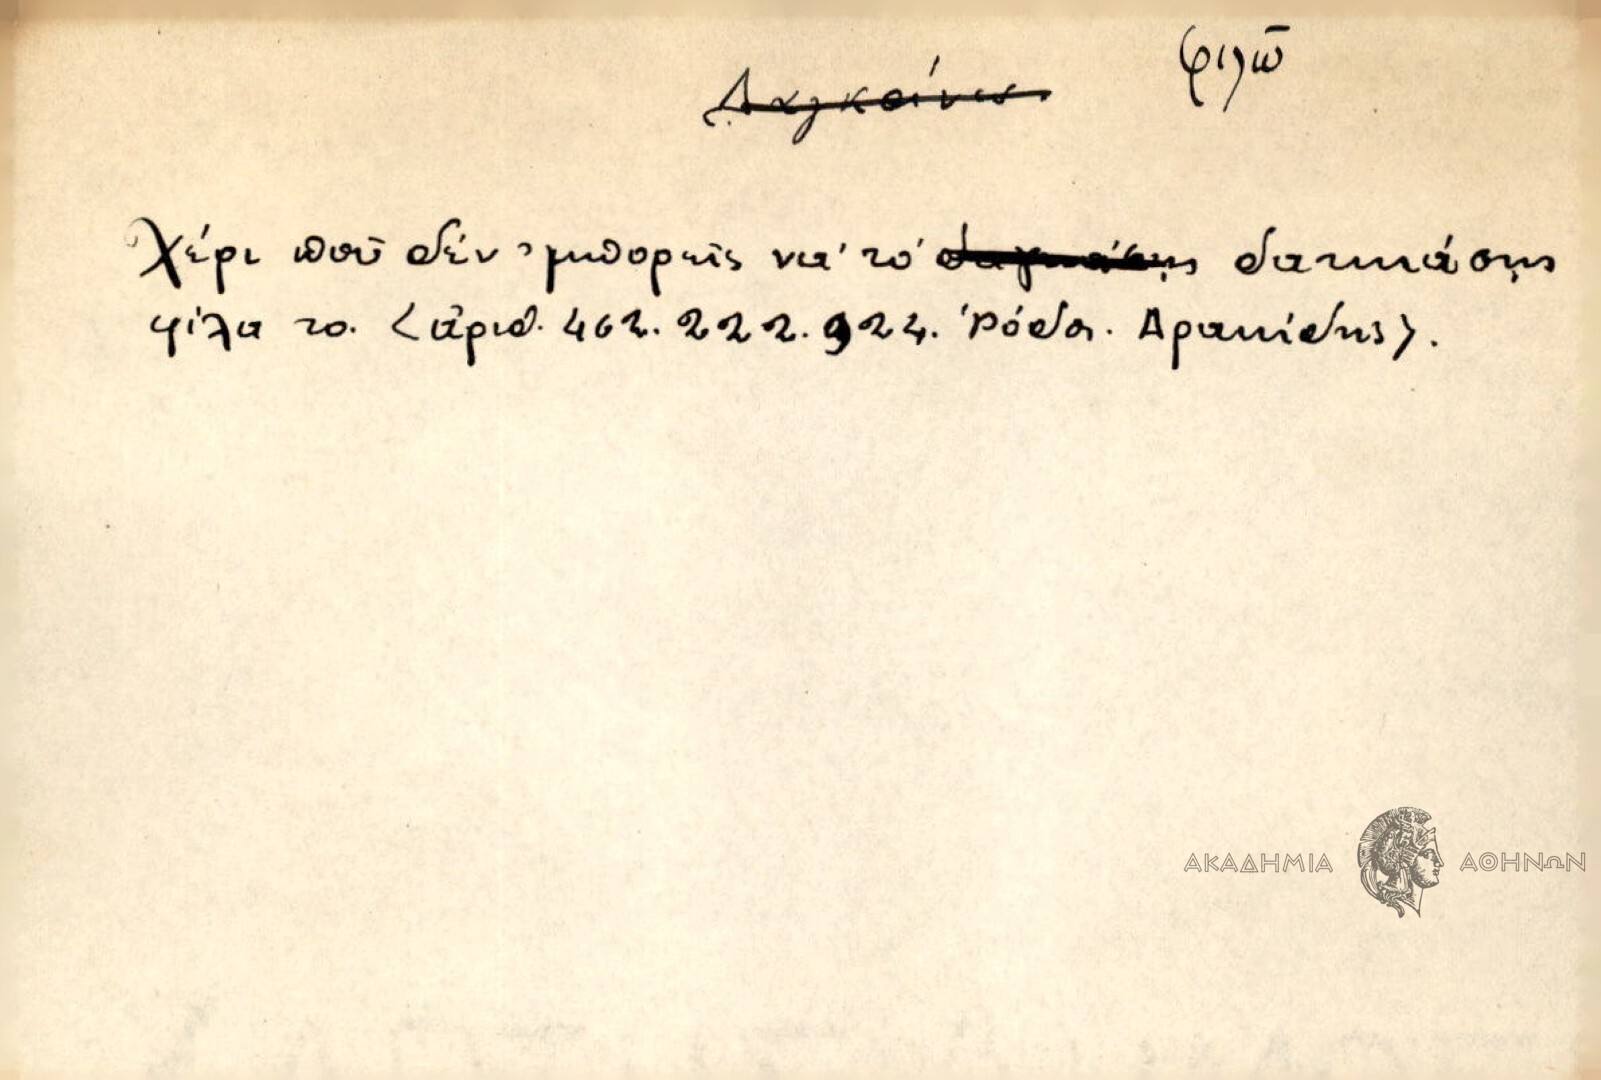 φιλῶ
Δαγκάνω
Χέρι ποῦ δέν ᾿μπορεῖς νά τό δαγκάσῃς δατκιάσῃς
φίλα το. (ἀριθ. 462. 222. 924. Ῥόδο. Δρακίδης).
ΑΚΑΔΗΜΙΑ ΑΘΗΝΩΝ